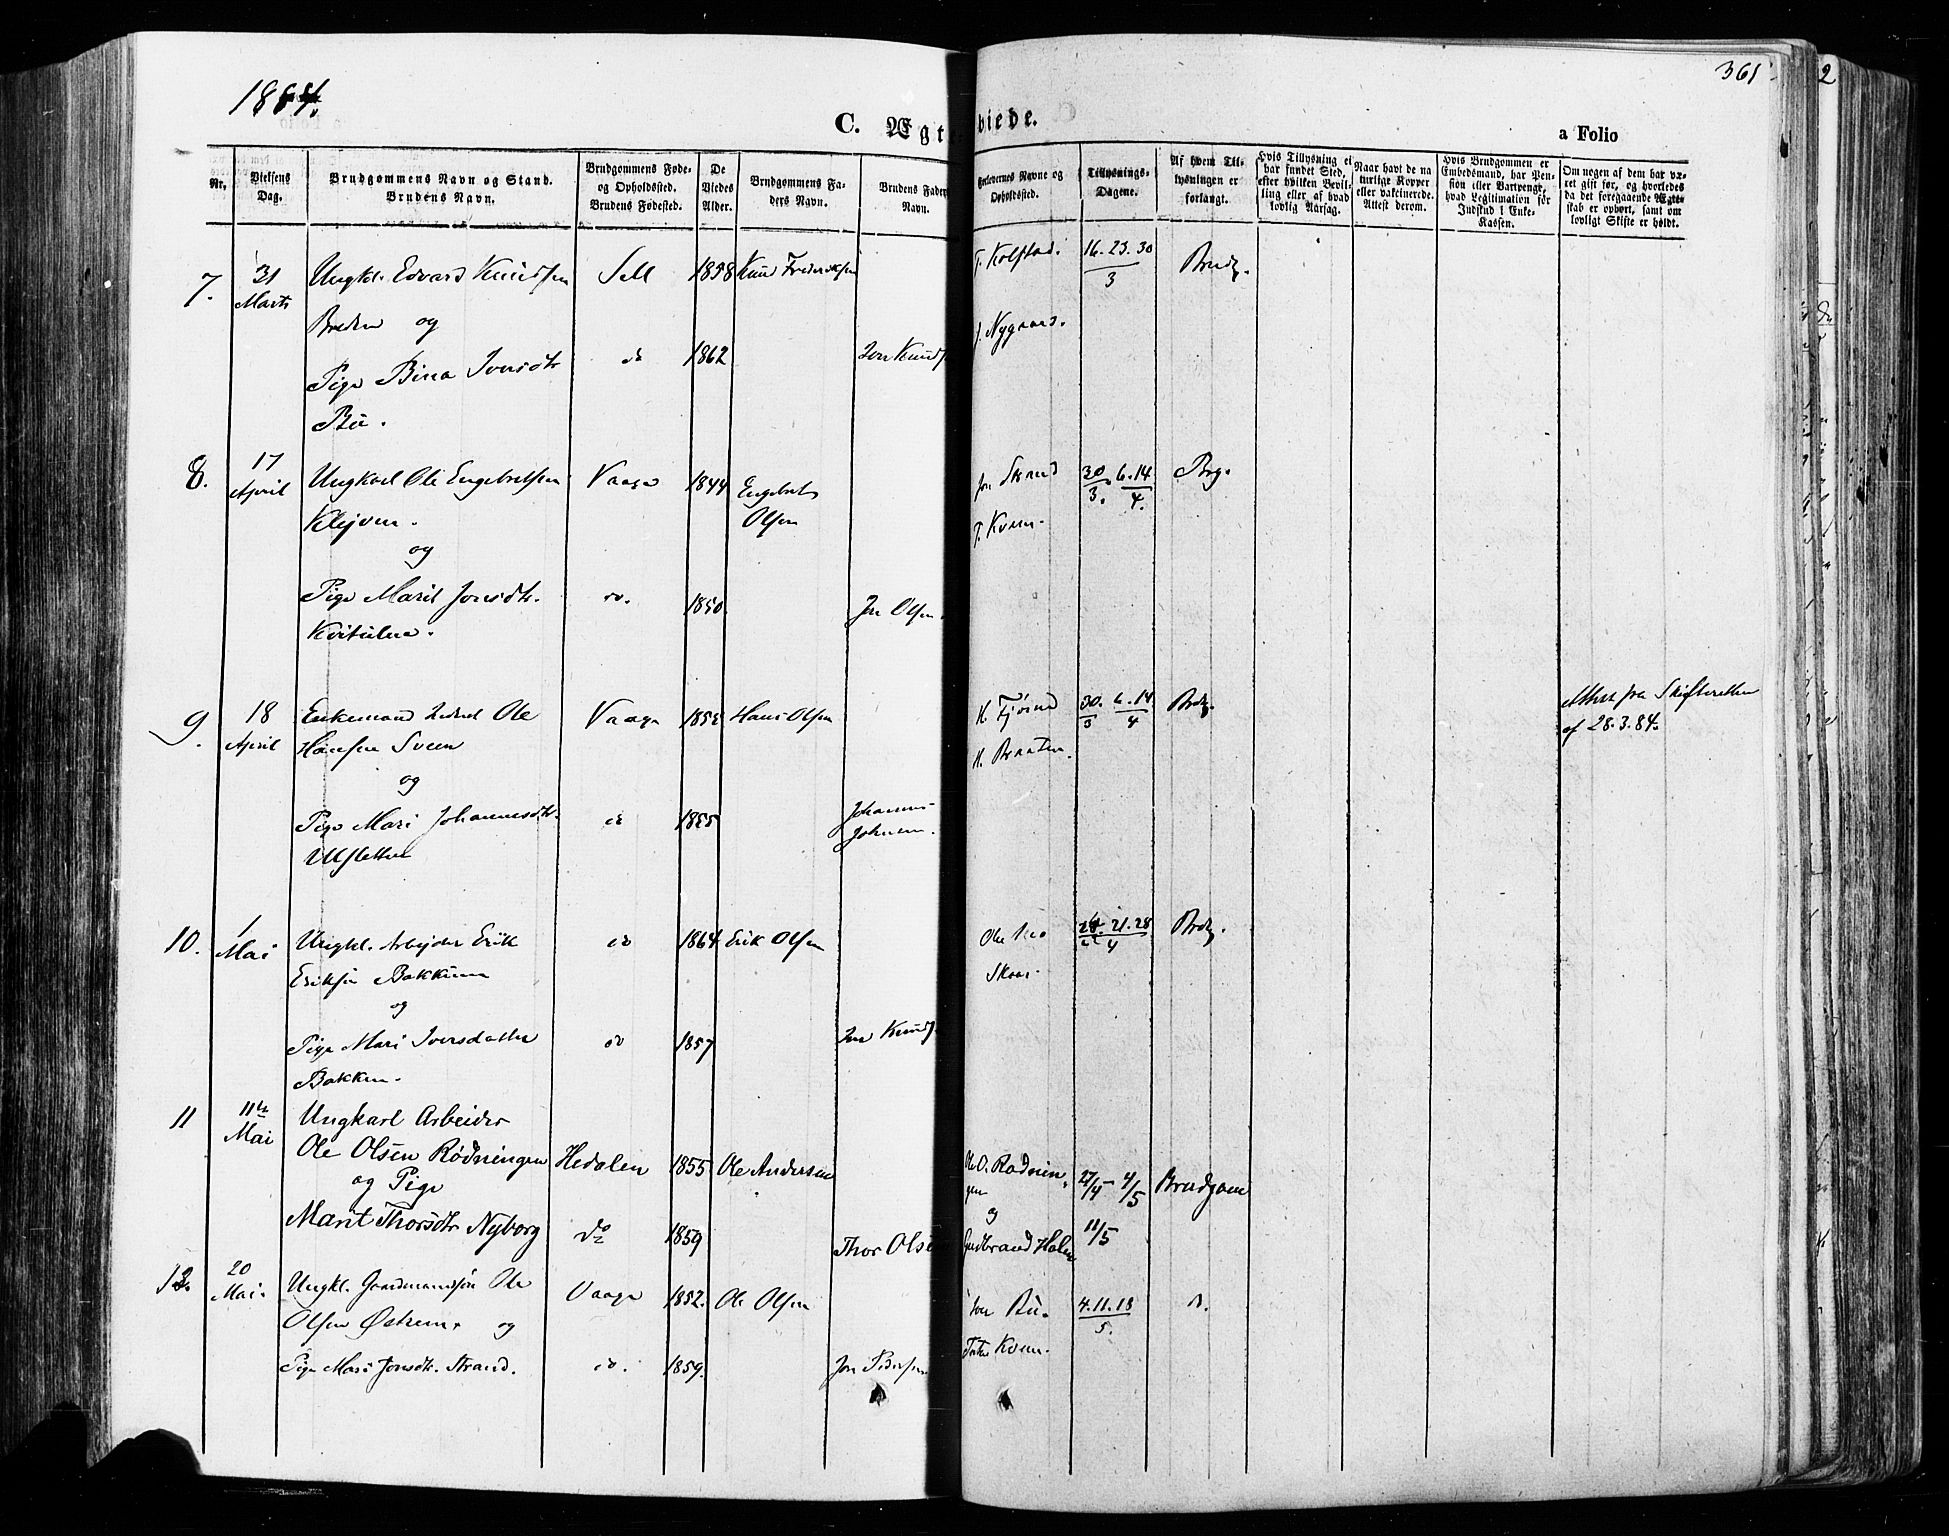 1884.
C. Ægte
viede.
a Folio
361
2
Nr.
Vielsens Dag.
Brudgommens Navn og Stand.
Brudens Navn.
Brudgommens Føde-
og Opholdssted.
Brudens Fødested.
De
Viedes
Alder.
Brudgommens Fa-
ders Navn.
Brudens Faders
Navn.
Forlovernes Navne og
Opholdssted.
Tillysnings-
Dagene.
Af hvem Til-
lysningen er
forlangt.
Hvis Tillysning ei
har fundet Sted,
efter hvilken Bevil-
ling eller af hvad
lovlig Aarsag.
Naar havt de na
turlige Kopper
eller vaktinerede.
Attest derom.
Hvis Brudgommen er
Embedsmand, har Pen-
sion eller Vartpenge,
hvad Legitimation for
Indskud i Enke-
Kassen.
Om nogen af dem har væ-
ret gift før, og hvorledes
da det foregaaende Ægte-
skab er ophørt, samt om
lovligt Skifte er holdt.
7. 31 Marts Ungkl. Edvard Knudsen Sell 1858 Knud Frederiksen T. Kolstad. 16. 23. 30 / 3 Brudg.
Breden og
J. Nygaard.
Pige Bina Iversdtr do 1862 Iver Knuds
Bu.
8. 17 April Ungkarl Ole Engebretsen Vaage 1844 Engebret Olsen Jon Strand 30/3. 6.14/4. Brg.
Klejven. T. Kvern.
og
Pige Marit Jonsdtr. do. 1850. Jon Olsen.
9. 18 April Enkemand Ole Vaage Hans Olsen 30/3 6.14/4 Brdg. Attest fra Skifteretten
Hansen Sveen H. Braaten. af 28.3.84.
og
Pige Mari Johannesdtr. do 1855 Johannes
Johnsen.
10. 1 Mai Ungkl. Arbejder Erik do 1864 Erik Olsen Ole 21. 28/4 Brdg.
Eriksen Bakkum Skaar.
og
Pige Mari Iversdatter do 1857 Iver Knuds
Bakken.
11 11te Mai Ungkarl Arbeider
Ole Olsen Rødningen Hedalen 1855 Ole Andersen Ole O. Rødnin- 27/4 - 4/5 Brudgom
og Pige gen
og
Marit Thorsdtr Nyborg do 1859 Thor Olsen Gudbrand Holen 11/5
12. 20 Mai. Ungkl. Gaardmandssøn Ole Vaage 1852. Ole Olsen Iver Bu. 4.11.18/5. d.
Olsen Østrem. og Kvern.
Pige Mari Jonsdtr. Strand. do. 1859. Jon Pedersen